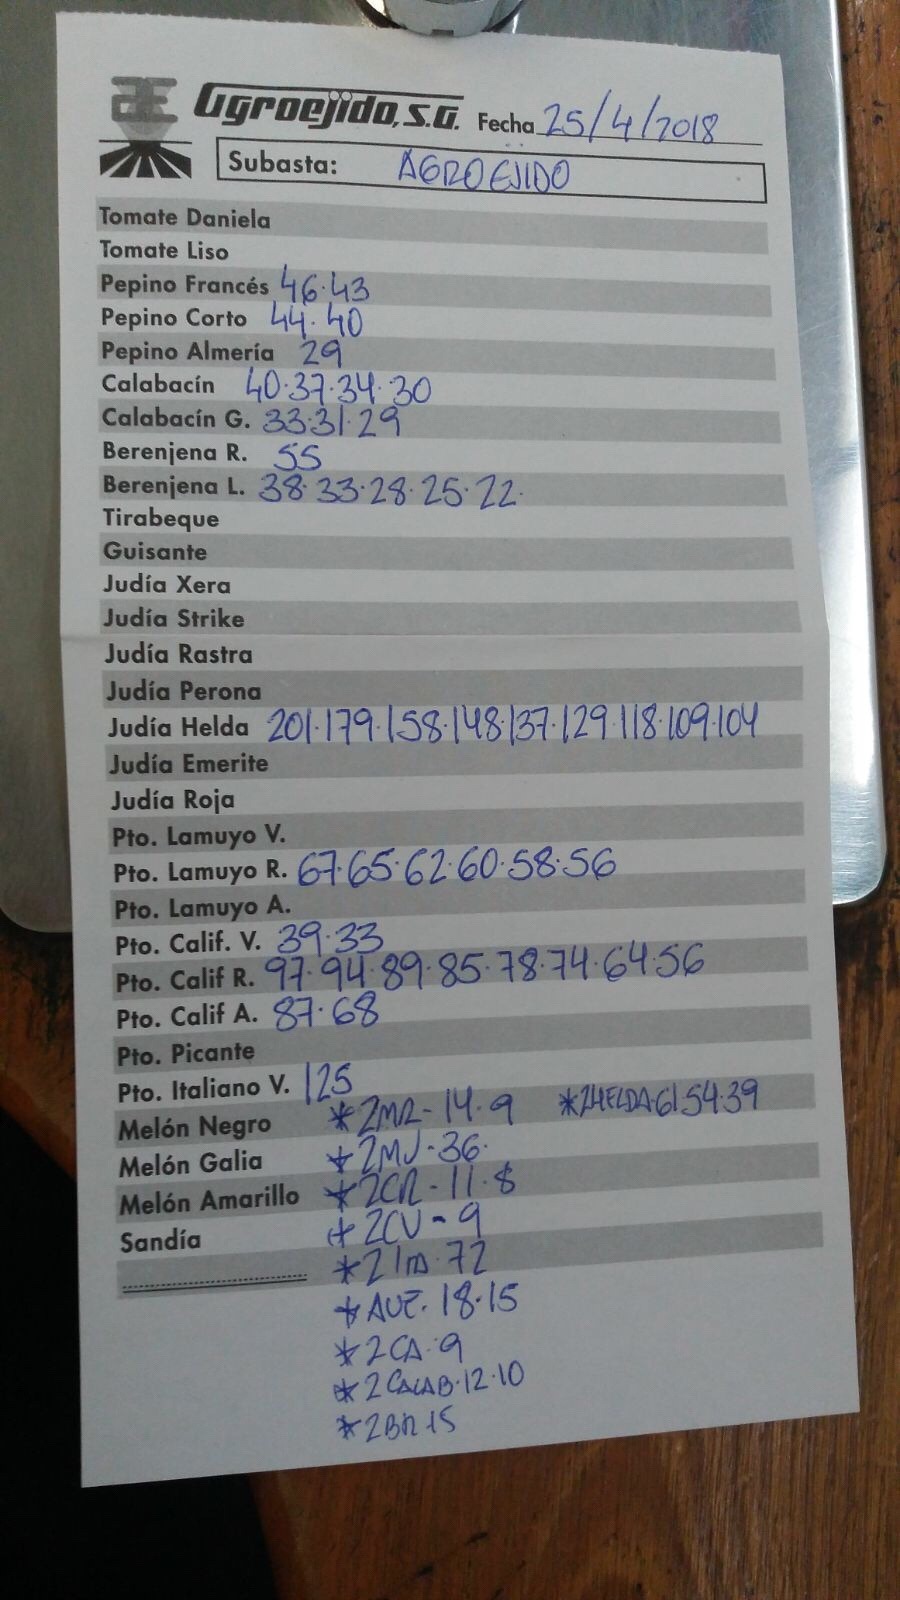 Agroejido, S.G. Fecha 25/4/2018
Subasta: AGROEJIDO
Tomate Daniela
Tomate Liso
Pepino Francés 46·43
Pepino Corto 44·40
Pepino Almería 29
Calabacín 40·37·34·30
Calabacín G. 33·31·29
Berenjena R. 55
Berenjena L. 38·33·28·25·22·
Tirabeque
Guisante
Judía Xera
Judía Strike
Judía Rastra
Judía Perona
Judía Helda 201·179·158·148·137·129·118·109·104
Judía Emerite
Judía Roja
Pto. Lamuyo V.
Pto. Lamuyo R. 67·65·62·60·58·56
Pto. Lamuyo A.
Pto. Calif. V. 39·33
Pto. Calif R. 97·94·89·85·78·74·64·56
Pto. Calif A. 87·68
Pto. Picante
Pto. Italiano V. 125
Melón Negro *2MR-14·9 *2HELDA·61·54·39
Melón Galia *2MV-36·
Melón Amarillo *2CR-11·8
Sandía *2CV-9
*2ITA·72
*AVE·18·15
*2CA·9
*2CALAB·12·10
*2BR·15